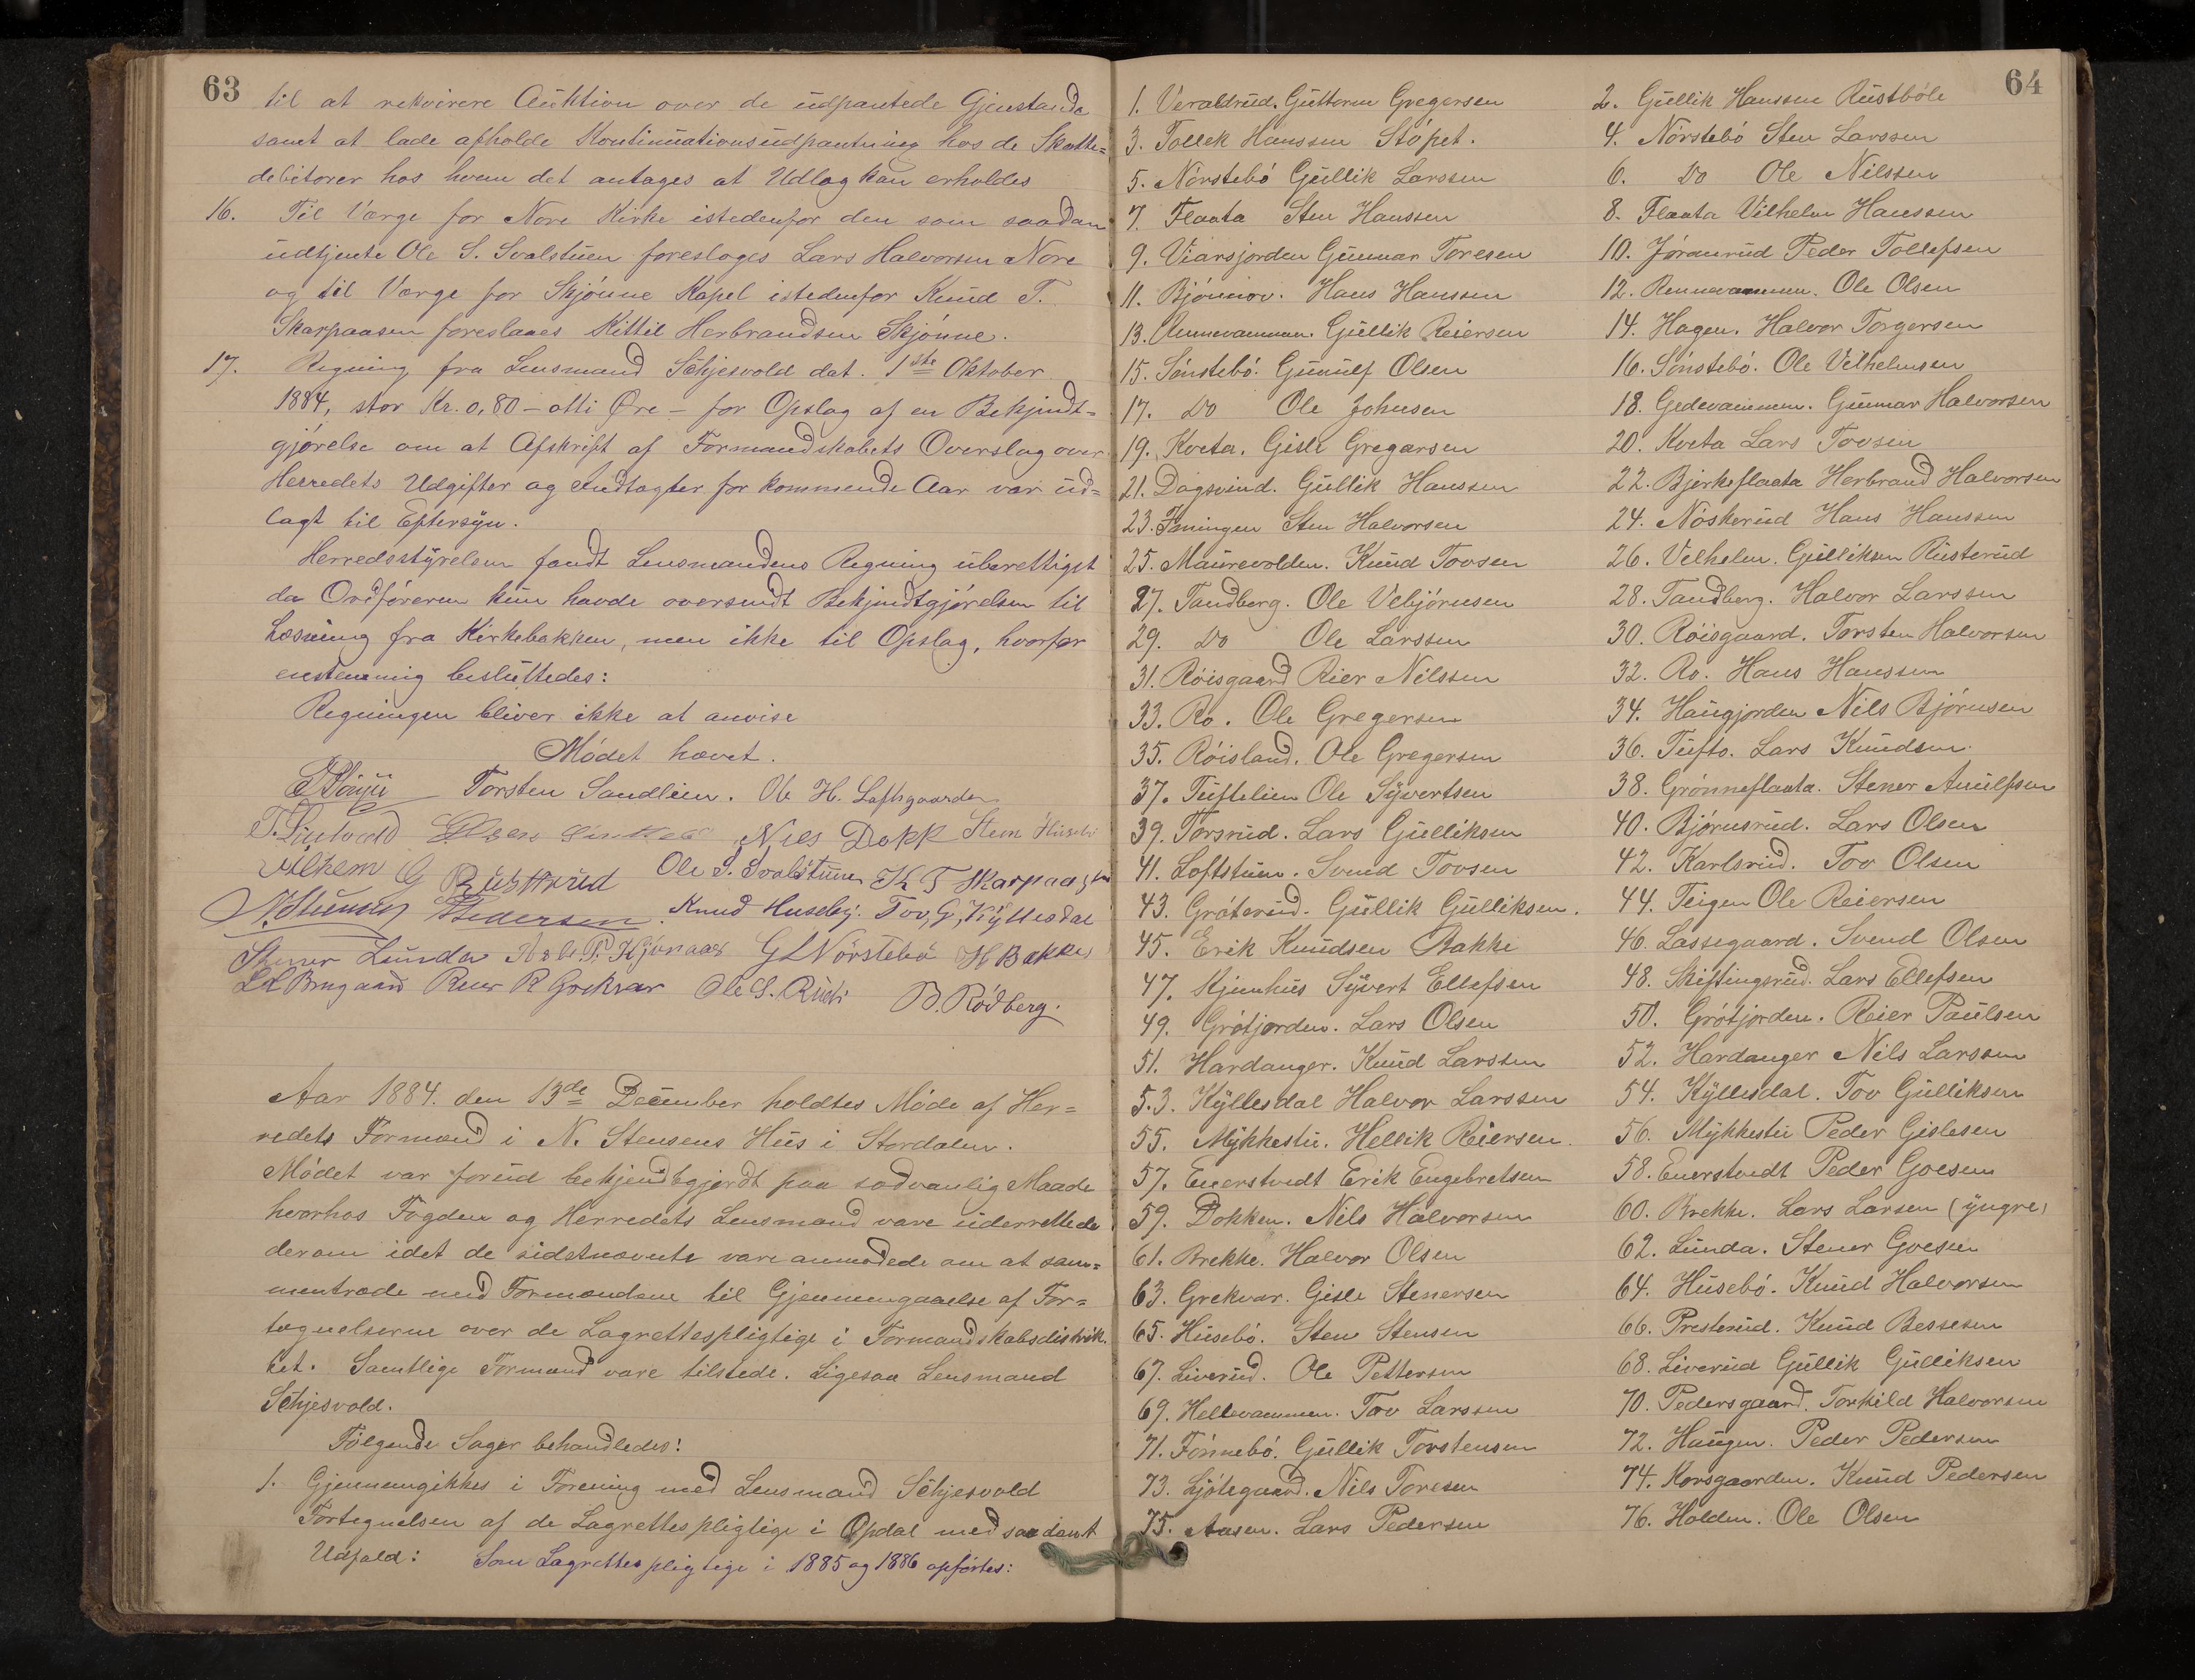 63
til at rekvirere Auktion over de udpantede Gjenstande
samt at lade afholde Kontinuationsudpantning hos de Skatte-
debitorer hos hvem det antages at Udlæg kan erholdes
16. Til Værge for Nore Kirke istedenfor den som saadan
udtjente Ole S. Svalstuen foresloges Lars Halvorsen Nore
og til Værge for Skjönne Kapel istedenfor Knud T.
Skarpaasen foreslaaes Kittil Herbrandsen Skjönne.
17. Regning fra Lensmand Schjesvold dat. 1ste Oktober
1884, stor Kr. 0,80 - otti Øre - for Opslag af en Bekjendt-
gjørelse om at Afskrift af Formandskabets Overslag over
Herredets Udgifter og Indtægter for kommende Aar var ud-
lagt til Eftersyn.
Herredsstyrelsen fandt Lensmandens Regning uberettiget
da Ordføreren kun havde oversendt Bekjendtgjørelsen til
Læsning fra Kirkebakken, men ikke til Opslag, hvorfor
enstemmig besluttedes:
Regningen bliver ikke at anvise
Mödet hævet.
Torsten Sandlien. Ole H. Loftsgaarden
Nils Dokk Sten Husebö
Vilhelm G Rusterud Ole S. Svalstuen K T Skarpaasen
Pedersen. Knud Huseby. Tov, G, Kyllesdal
Stener Lunda G L Nörstebö H Bakke
Reier R Grekvar Ole S. Rudi B. Rödberg.
Aar 1884. den 13de December holdtes Möde af Her-
redets Formænd i N. Stensens Hus i Stordalen.
Mödet var forud bekjendtgjordt paa sædvanlig Maade
hvorhos Fogden og Herredets Lensmand vare underrettede
derom idet de sidstnævnte vare anmodede om at sam-
mentræde med Formændene til Gjennemgaaelse af For-
tegnelserne over de Lagrettespligtige i Formandskabsdistrik-
tet. Samtlige Formænd vare tilstede. Ligesaa Lensmand
Schjesvold.
Følgende Sager behandledes:
1. Gjennemgikkes i Forening med Lensmand Schjesvold
Fortegnelsen af de Lagrettespligtige i Opdal med saadant
Udfald: Som Lagrettespligtige i 1885 og 1886 opførtes:
64
1. Veraldrud. Guttorm Gregersen
2. Gullik Hanssen Rustböle
3. Tollek Hanssen Stöpet.
4. Nörstebö Sten Larssen
5. Nörstebö Gullik Larssen
6. Do Ole Nilssen
7. Flaata Sten Hanssen
8. Flaata Vilhelm Hanssen
9. Viarsjorden Gunnar Toresen
10. Jöranrud Peder Tollefsen
11. Björnhov. Hans Hanssen
12. Rennevammen. Ole Olsen
13. Rennevammen. Gullik Reiersen
14. Hagen. Halvor Torgersen
15. Sönstebö. Gunulf Olsen
16. Sönstebö. Ole Vilhelmsen
17. Do Ole Johnsen
18. Gedevammen. Gunnar Halvorsen
19. Kveta. Gisle Gregarsen
20. Kveta Lars Tovsen
21. Dagsvind. Gullik Hanssen
22. Bjerkeflaata Herbrand Halvorsen
23. Imingen Sten Halvorsen
24. Nöskerud Hans Hanssen
25. Maurevolden. Knud Tovsen
26. Vilhelm. Gulliksen Rusterud
27. Tandberg. Ole Vebjörnsen
28. Tandberg. Halvor Larssen
29. Do Ole Larssen
30. Röisgaard. Torsten Halvorsen
31. Röisgaard Reier Nilssen
32. Ro. Hans Hanssen
33. Ro. Ole Gregersen
34. Haugjorden Nils Björnsen
35. Röisland. Ole Gregersen
36. Tufto. Lars Knudsen.
37. Tuftelien Ole Syvertsen
38. Grönneflaata. Stener Anulfsen
39. Torsrud. Lars Gulliksen
40. Björnsrud. Lars Olsen
41. Loftstuen. Svend Tovsen
42. Karlsrud. Tov Olsen
43. Gröterud. Gullik Gulliksen.
44. Teigen Ole Reiersen
45. Erik Knudsen Bakke
46. Lassegaard. Svend Olsen
47. Kjemhus Syvert Ellefsen
48. Skiftingsrud. Lars Ellefsen
49. Grötjorden. Lars Olsen
50. Grötjorden. Reier Paulsen
51. Hardanger. Knud Larssen
52. Hardanger Nils Larssen
53. Kyllesdal Halvor Larssen
54. Kyllesdal. Tov Gulliksen
55. Mykkestu. Hellik Reiersen.
56. Mykkestu Peder Gislesen
57. Enerstvedt Erik Engebretsen
58. Enerstvedt Peder Goesen
59. Dokken. Nils Halvorsen
60. Brekke. Lars Larsen (yngre)
61. Brekke. Halvor Olsen
62. Lunda. Stener Goesen
63. Grekvar. Gisle Stenersen
64. Husebö. Knud Halvorsen
65. Husebö. Sten Stensen
66. Presterud. Knud Bessesen
67. Liverud. Ole Pettersen
68. Liverud Gullik Gulliksen
69. Hellevammen. Tov Larssen
70. Pedersgaard. Torkild Halvorsen
71. Fönnebö. Gullik Torstensen
72. Haugen. Peder Pedersen
73. Ljötegaard. Nils Toresen
74. Korsgaarden. Knud Pedersen
75. Aasen. Lars Pedersen
76. Holden. Ole Olsen